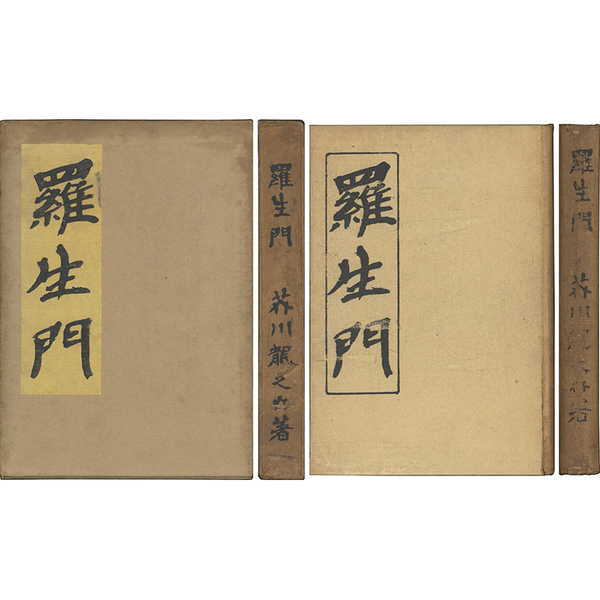 羅生門
羅生門 芥川龍之介著
羅生門
羅生門 芥川龍之介著